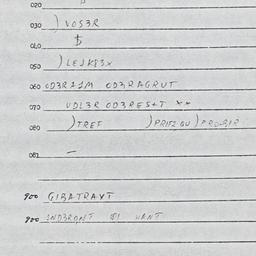 020
030 ) VOS3R
040 $
050 ) LEJK83X
060 OD3RA1M OD3RAGRUT
070 UDL3R OD3RES+T **
080 ) TREF ) PRIFZ GU ) PROBIR
082 -
900 GIBATRAXT
900 IND3RQNT VANT